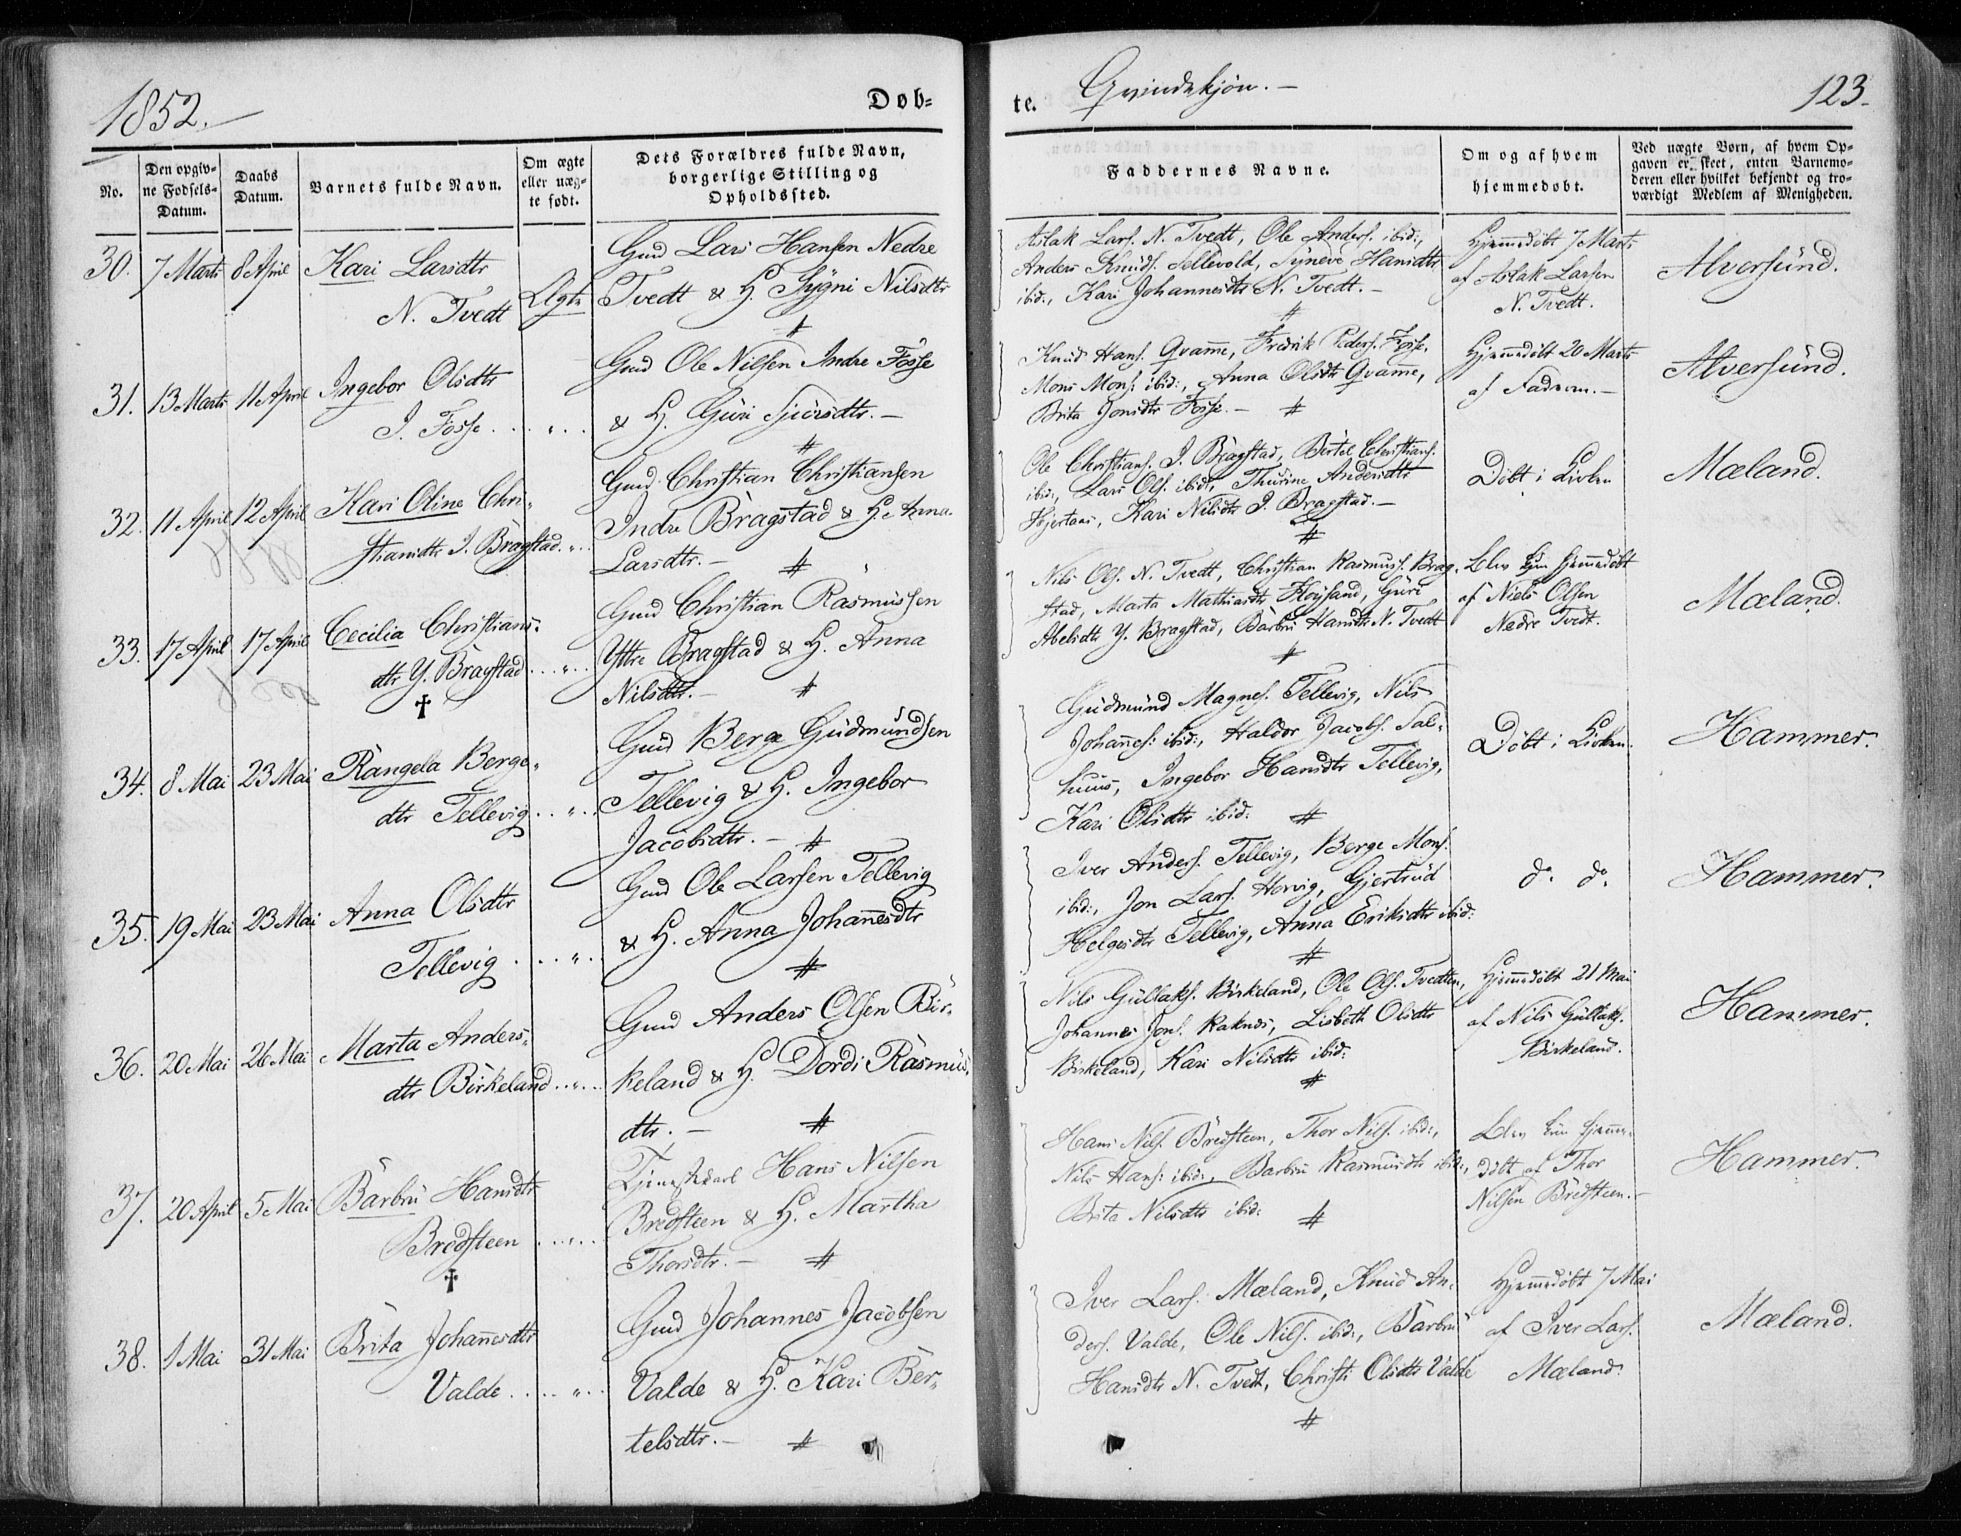 1852.
Døb-
te.
Qvindekjøn.
123.
No.
Den opgiv-
ne Fødsels-
Datum.
Daabs
Datum.
Barnets fulde Navn.
Om ægte
eller uæg-
te født.
Dets Forældres fulde Navn,
borgerlige Stilling og
Opholdssted.
Faddernes Navne.
Om og af hvem
hjemmedøbt.
Ved uægte Børn, af hvem Op-
gaven er skeet, enten Barnemo-
deren eller hvilket bekjendt og tro-
værdigt Medlem af Menigheden.
30. 7 Marts 8 April Kari Larsdtr
N. Tvedt
Ægte
Gmd Lars Hansen Nedre
Tvedt & H. Sygni Nilsdtr
Aslak Lars. N. Tvedt, Ole Anders. ibid:,
Anders Knuds. Tellevold, Synève Hansdtr
ibid:, Kari Johannesdtr N. Tvedt. -
Hjemmedøbt 7 Marts
af Aslak Larsen
N. Tvedt.
Alversund.
31. 13 Marts 11 April Ingebor Olsdtr
I. Fosse . . . „ . .
Gmd Ole Nilsen Indre Fosse
& H. Guri Sjursdtr. -
Knud Hans. Qvamme, Fredrik Peders. Fosse,
Mons Mons: ibid:, Anna Olsdtr Qvamme,
Brita Jonsdtr Fosse. -
Hjemmedøbt 20 Marts
af Faderen. -
Alversund.
32. 11 April 12 April Kari Oline Chri-
stiansdtr I. Bragstad . „ . .
Gmd Christian Christiansen
Indre Bragstad & H. Anna
Larsdtr. -
Ole Christians. I. Bragstad, Bertel Christians.
ibid:, Lars Ols. ibid:, Thurine Andersdtr
Hjertaas, Kari Nilsdtr I. Bragstad. -
Døbt i Kirken
Mæland.
33. 17 April 17 April Cecilia Christians-
dtr Y. Bragstad . . „ . .
†
Gmd Christian Rasmussen
Yttre Bragstad & H. Anna
Nilsdtr. -
Nils Ols. N. Tvedt, Christian Rasmuss. Brag-
stad, Marta Mathiasdtr Høysand, Guri
Abelsdtr Y. Bragstad, Barbru Hansdtr N. Tvedt
Blev kun hjemmedøbt
af Niels Olsen
Nedre Tvedt.
Mæland.
34. 8 Mai 23 Mai Rangela Berge-
dtr Tellevig . . „ . .
Gmd Berge Gudmundsen
Tellevig & H. Ingebor
Jacobsdtr. -
Gudmund Magnes. Tellevig, Nils
Johannes: ibid:, Haldor Jacobs. Sal-
huus, Ingebor Hansdtr Tellevig,
Kari Olsdtr ibid:
Døbt i Kirken.
Hammer.
35. 19 Mai 23 Mai Anna Olsdtr
Tellevig . . . „ . .
Gmd Ole Larsen Tellevig
& H. Anna Johannesdtr
Iver Anders. Tellevig, Berge Mons.
ibid:, Jon Lars. Hervig, Gjertrud
Helgesdtr Tellevig, Anna Eriksdtr ibid:
do. do.
Hammer.
36. 20 Mai 26 Mai Marta Anders-
dtr Birkeland . . „ . .
Gmd Anders Olsen Bir-
keland & H. Dordi Rasmus-
dtr. -
Nils Gullaks. Birkeland, Ole Ols. Tvedten,
Johannes Jons. Raknes, Lisbeth Olsdtr
Birkeland, Kari Nilsdtr ibid:
Hjemmedøbt 21 Mai
af Nils Gullaks.
Birkeland.
Hammer.
37. 20 April 5 Mai Barbru Hansdtr
Bredsteen . . „ . .
†
Tjenestekarl Hans Nilsen
Bredsteen & H. Martha
Thorsdtr. -
Hans Nils. Bredsteen, Thor Nils. ibid:,
Nils Hans: ibid:, Barbru Rasmusdtr ibid:,
Brita Nilsdtr ibid:
Blev kun hjemme-
døbt af Thor
Nilsen Bredsteen. -
Hammer.
38. 1 Mai 31 Mai Brita Johannesdtr
Valde . . . „ . .
Gmd Johannes Jacobsen
Valde & H. Kari Ber-
telsdtr. -
Iver Lars. Mæland, Knud An-
ders. Valde, Ole Nils. ibid:, Barbru
Hansdtr N. Tvedt, Christi Olsdtr Valde
Hjemmedøbt 7 Mai
af Iver Lars.
Mæland.
Mæland.